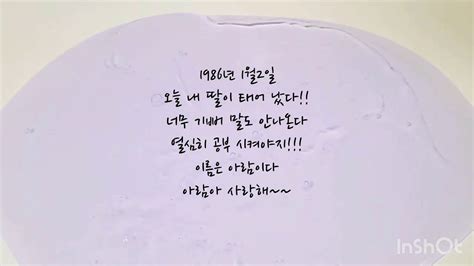 1986년 1월2일
오늘 내 딸이 태어 났다!!
너무 기뻐 말도 안나온다
열심히 공부 시켜야지!!!
이름은 아람이다
아람아 사랑해~~
InShOt